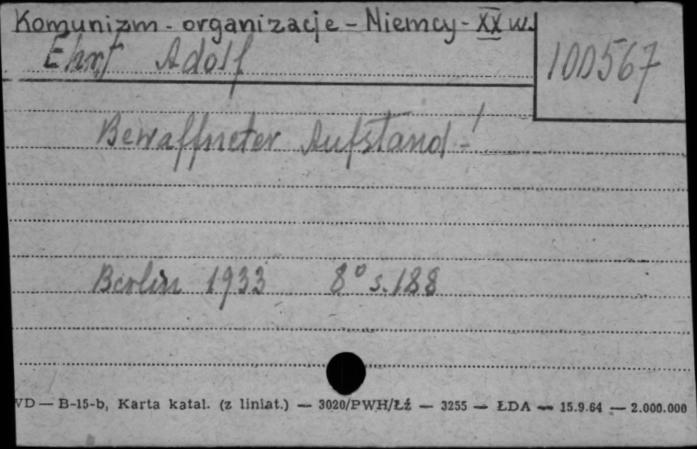 Komunizm - organizacje - Niemcy - XX w.
Ehrt Adolf
100567
Bewaffneter Aufstand - !
Berlin 1933 8° s. 188
VD — B-15-b, Karta katal. (z liniat.) — 3020/PWH/Łź — 3255 — ŁDA — 15.9.64 — 2.000.000